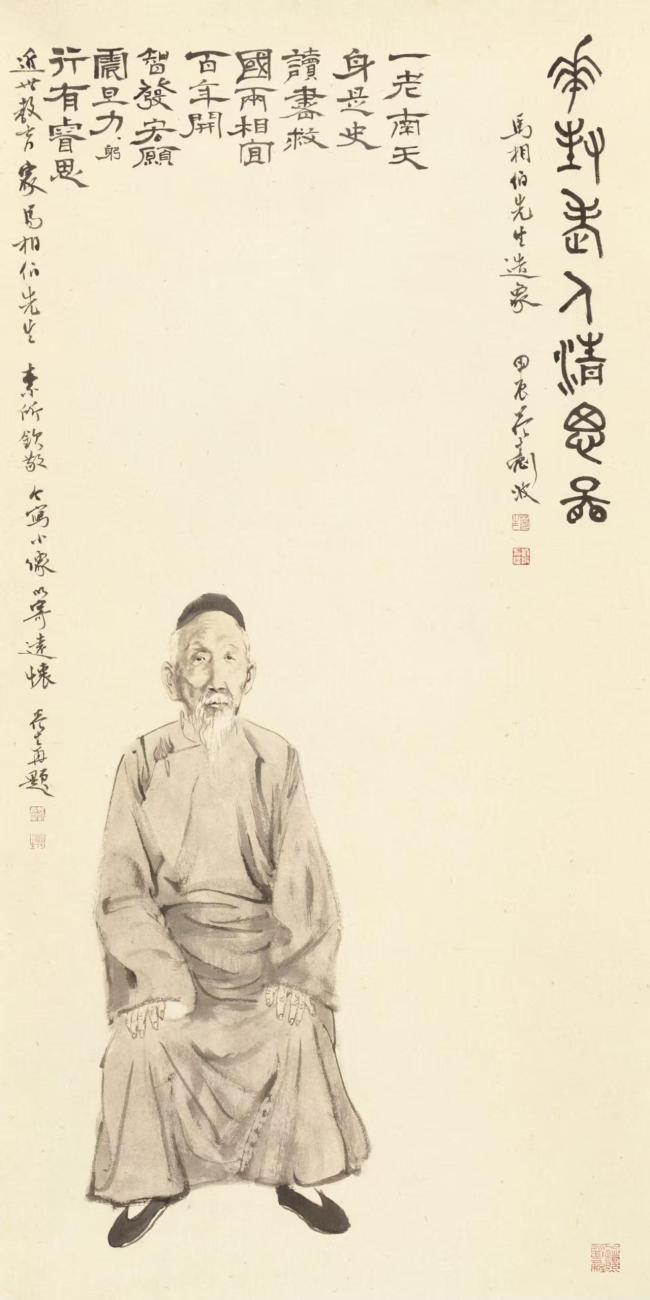 華封老人清思
馬相伯先生造象 甲辰 劍波
一老南天
身是史
讀書救
國兩相宜
百年開
智發宏願
震旦力躬
行有睿思
近世教育家馬相伯先生 素所欽敬 今寫小像 以寄遠懷 再題